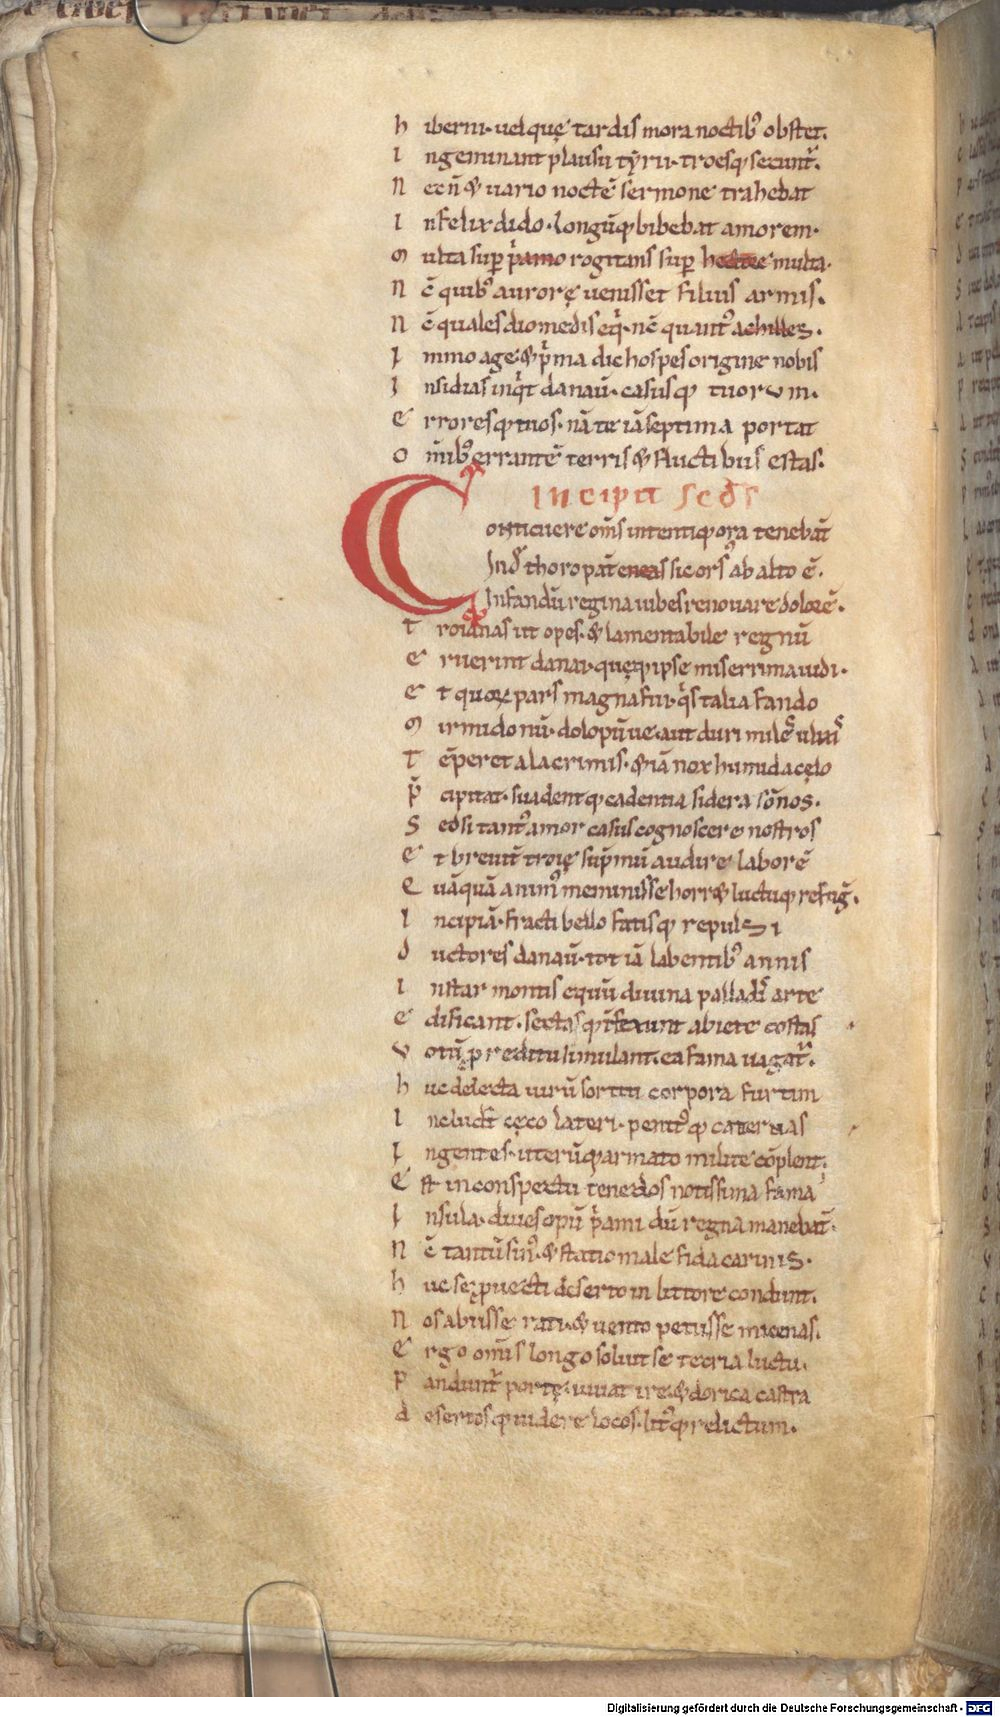 hiberni· uel quę tardis mora noctib᾽ obstet.
Ingeminant plausu tyrii· troesq; secunt᷑.
Nec n̄ & uario noctē sermone trahebat
Infelix dido· longūq; bibebat amorem·
Multa sup p̄amo rogitans sup hectore multa·
Nc̄ quib᾽ aurorę uenisset filius armis.
Nc̄ quales diomedis eq̇· nc̄ quant᾽ achilles.
Immo age· & p̄ma dic hospes origine nobis
Insidias inq̇t danaū· casusq; tuorum·
Erroresq; tuos· nā te iā septima portat
Om̄ib᾽ errantē terris & fluctibus estas.
Incipit scd̄s
Conticuere om̄s intentiq; ora tenebāt
Ind̄ thoro pat̄ eneas sic ors᾽ ab alto ē.
Infandū regina iubes renouare dolorē.
troianas ut opes· & lamentabile regnū
eruerint danai· quęq; ipse miserrima uidi·
et quoꝝ pars magna fui· q̇s talia fando
Mirmidonū· dolopūue· aut duri milēs ulixi
Tēperet a lacrimis· & iā nox humida cęlo
P̄cipitat· suadentq; cadentia sidera sōnos.
Sed si tant᾽ amor casus cognoscere nostros
et breuit̄ troię sup̄mū audire laborē
Quāquā anim᾽ meminisse horr& luctuq; refuḡ.
Incipiā· fracti bello fatisq; repulsi
ductores danaū· tot iā labentib᾽ annis
instar montis equū diuina palladis arte
edificant· sectaq; intexunt abiete costas
votū p reditu simulant· ea fama uagat᷑.
huc delecta uirū sortiti corpora furtim
Includt̄ cęco lateri· penit᾽q; cauernas
Ingentes· uterūq; armato milite cōplent.
Est in conspectu tenedos notissima fama
Insula· diues opū p̄ami dū regna manebāt·
Nc̄ tantū sin᾽· & statio male fida carinis·
huc se ꝓuecti deserto in littore condunt.
Nos abiisse rati· & uento petiisse micenas.
Ergo om̄is longo soluit se tecria luctu·
Pandunt᷑ portę· iuuat ire· & dorica castra
desertosq; uidere locos· lit᾽q; relictum·
Digitalisierung gefördert durch die Deutsche Forschungsgemeinschaft - DFG